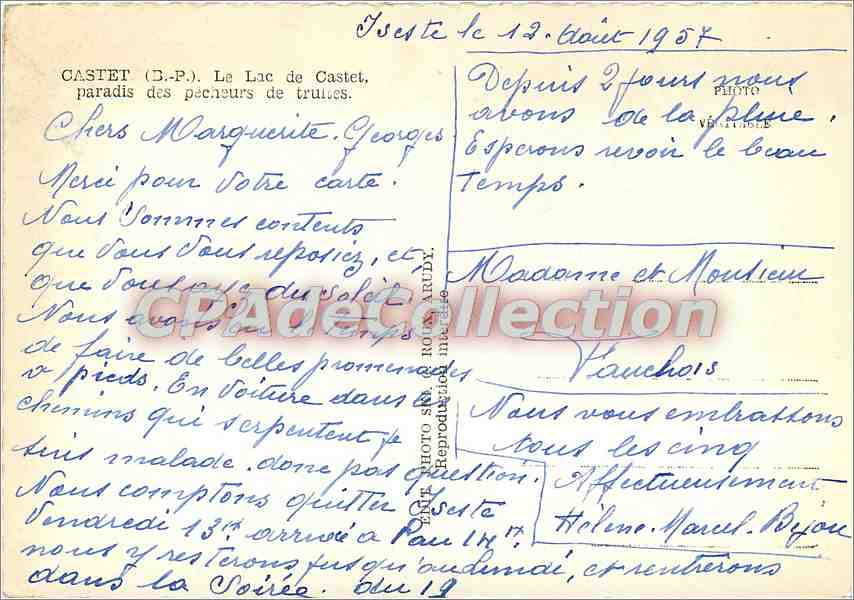 Iseste le 12. Août 1957
CASTET (B.-P.). Le Lac de Castet,
paradis des pêcheurs de truites.
Chers Marguerite. Georges
Merci pour votre carte.
Nous sommes contents
que vous vous reposiez, et
que vous ayez du soleil.
Nous avons eu le temps
de faire de belles promenades
à pieds. En voiture dans les
chemins qui serpentent je
suis malade. donc pas question.
Nous comptons quitter Iseste
Vendredi arrivée à Pau
nous y resterons jusqu'au lundi, et rentrerons
dans la Soirée. du 19
Depuis 2 jours nous
avons de la pluie.
Esperons revoir le beau
temps.
PHOTO
VÉRITABLE
EDIT. PHOTO ROUX, ARUDY.
Reproduction interdite
Madame et Monsieur
Vauchois
Nous vous embrassons
tous les cinq
Affectueusement
Hélène. Marcel. Bijou
CPAdeCollection